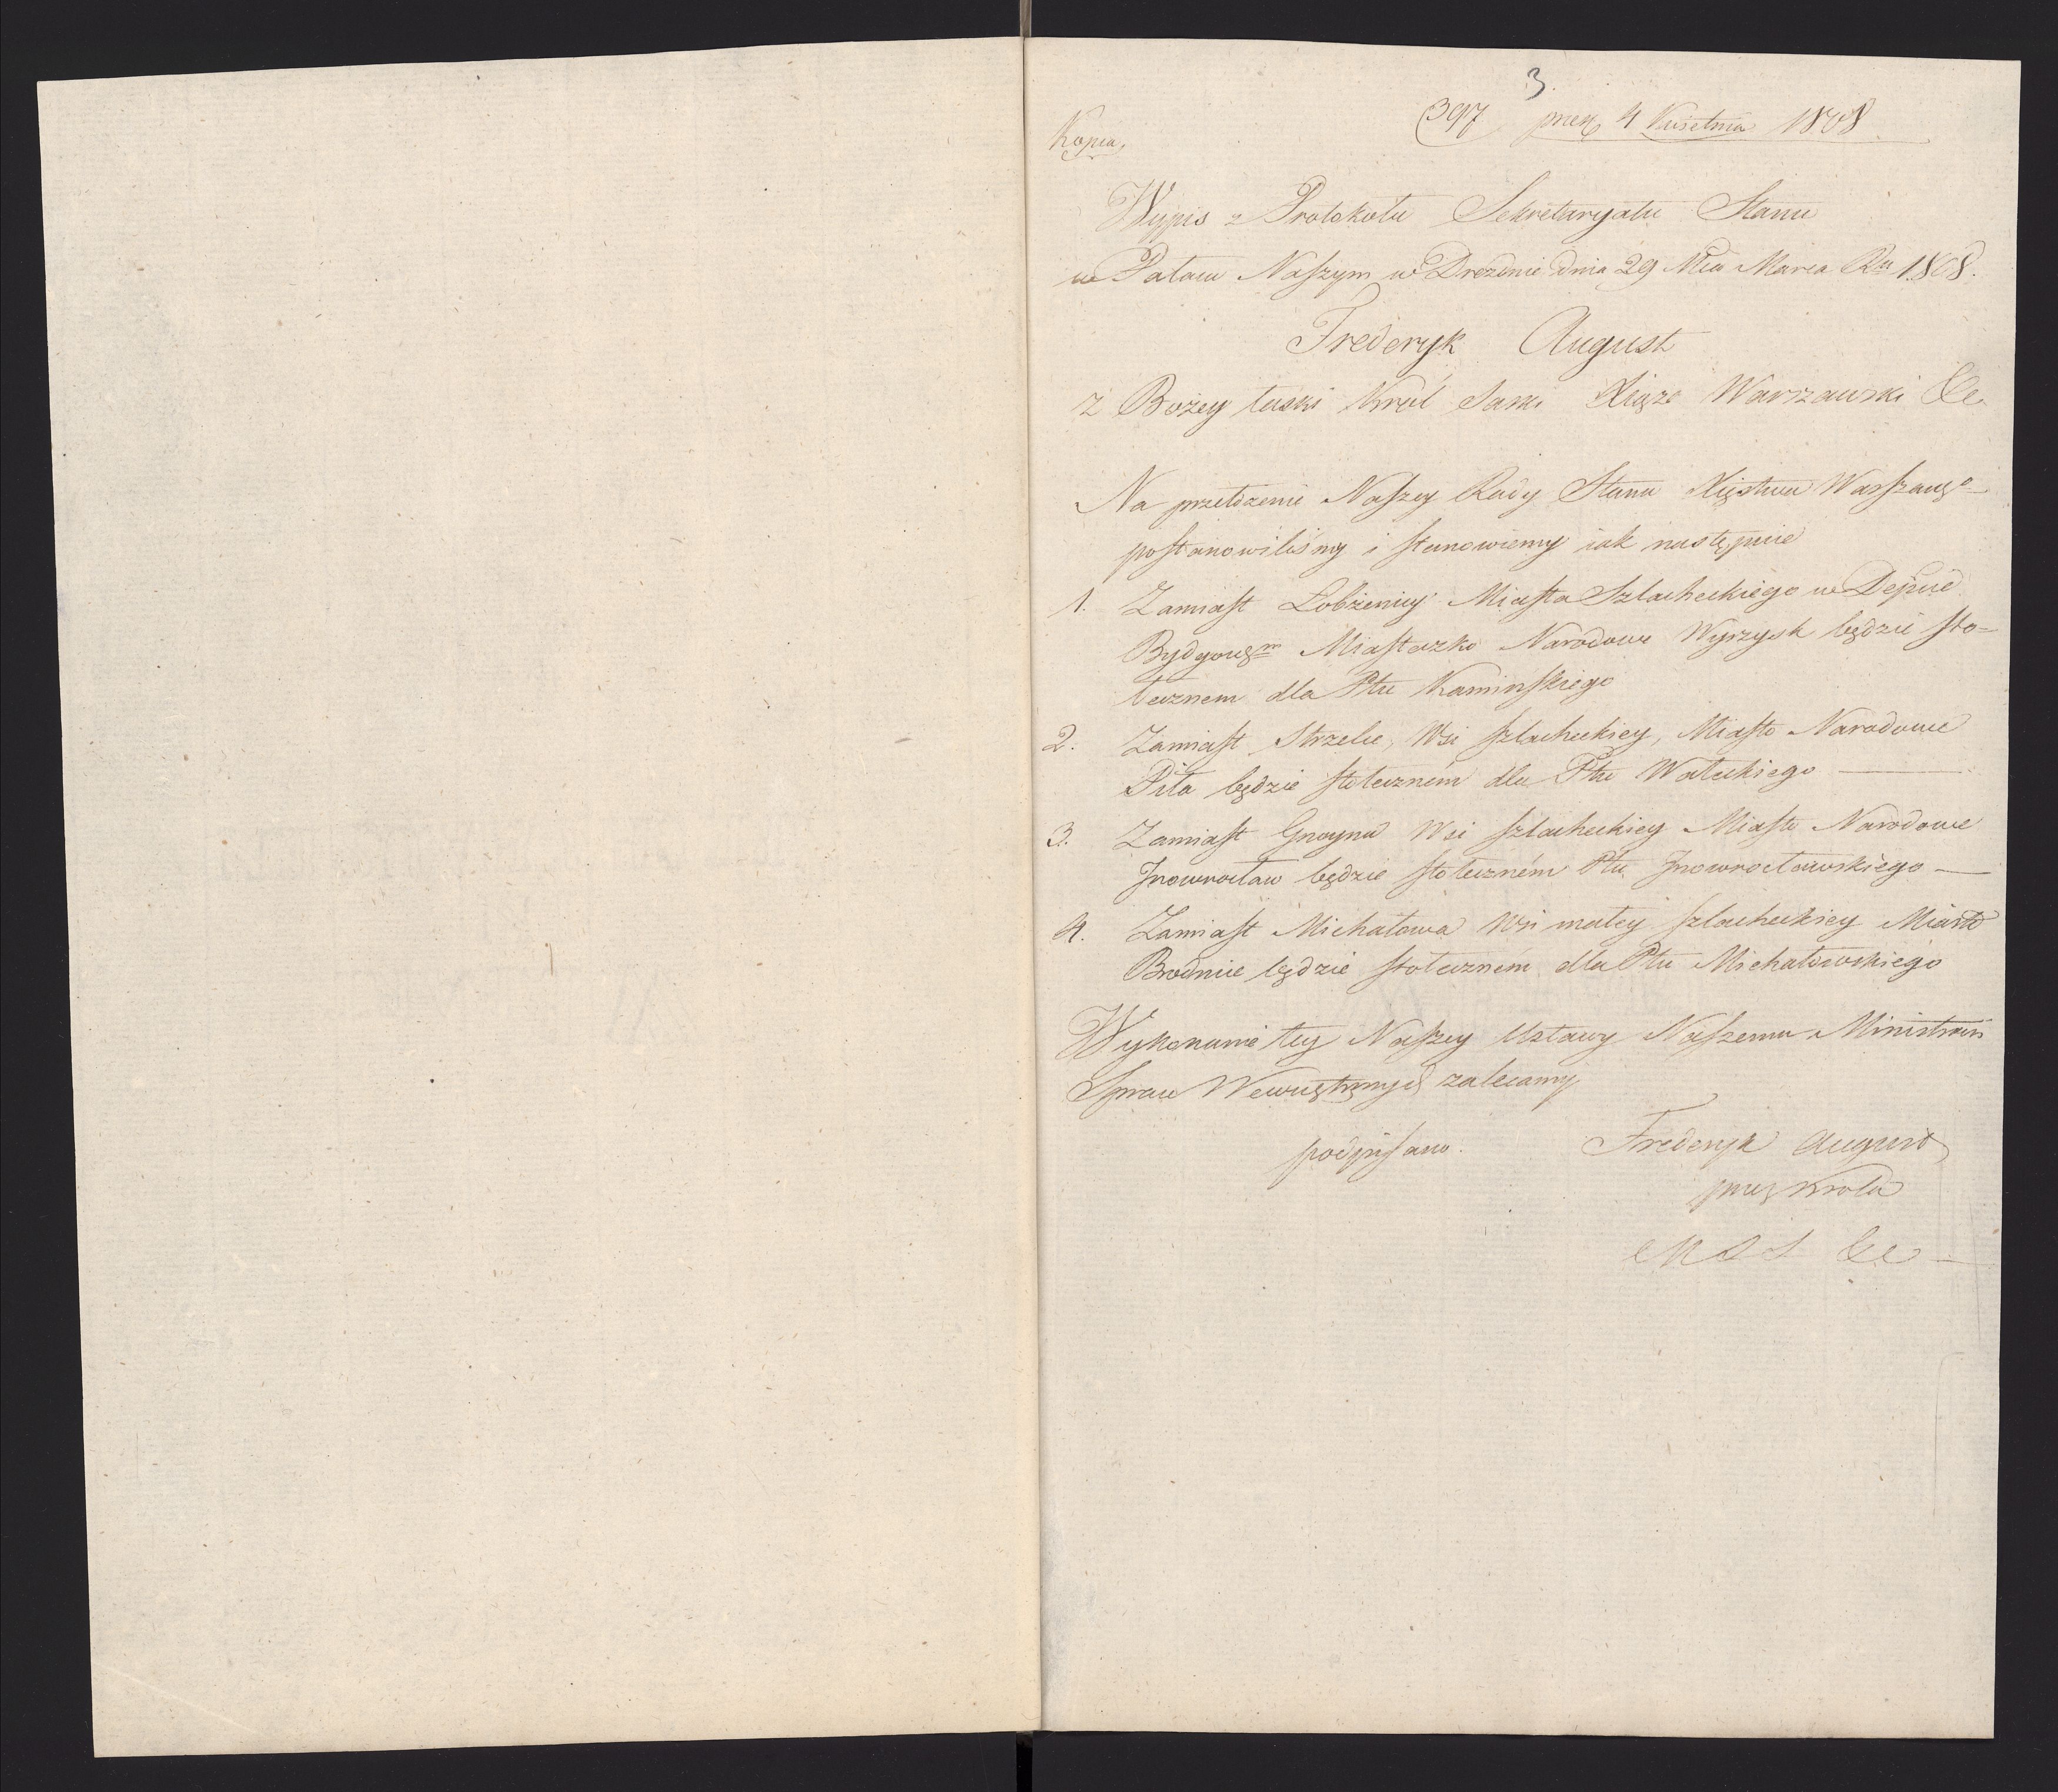 3.
397 prez 4 Kwietnia 1808
Kopia,
Wypis z Protokołu Sekretaryatu Stanu
w Pałacu Naszym w Dreźnie dnia 29 Mca Marca Rku 1808.
Frederyk August
z Bożey łaski Król Saski Xiąże Warszawski &c
Na przełożenie Naszey Rady Stanu Xięstwa Warszawgo
postanowiliśmy i stanowiemy iak następuie
1. Zamiast Łobżenicy Miasta Szlacheckiego w Depcie
Bydgowsm Miasteczko Narodowe Wyrzysk będzie sto=
łecznem dla Ptu Kaminskiego
2. Zamiast Strzelec, Wsi szlacheckiey, Miasto Narodowe
Piła będzie stołeczném dla Ptu Wałeckiego
3. Zamiast Gnoyna Wsi szlacheckiey Miasto Narodowe
Jnowrocław będzie stołeczném Ptu Jnowrocławskiego
4. Zamiast Michałowa Wsi małey szlacheckiey Miasto
Brodnice będzie stołeczném dla Ptu Michałowskiego
Wykonanie tey Naszey Ustawy Naszemu Ministrowi
Spraw Wewnętrznych zalecamy
podpisano. Frederyk August
przez Krola
&c